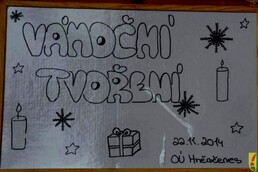 VÁNOČNÍ
TVOŘENÍ
22.11.2014
OÚ Hněvčeves